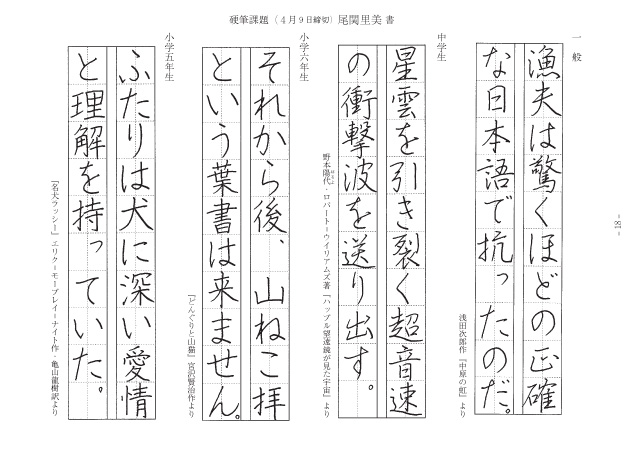 硬筆課題（４月９日締切）尾関里美 書
一般
漁夫は驚くほどの正確
な日本語で抗ったのだ。
浅田次郎作『中原の虹』より
中学生
星雲を引き裂く超音速
の衝撃波を送り出す。
野本陽代・ロバート＝ウイリアムズ著『ハッブル望遠鏡が見た宇宙』より
小学六年生
それから後、山ねこ拝
という葉書は来ません。
『どんぐりと山猫』宮沢賢治作より
小学五年生
ふたりは犬に深い愛情
と理解を持っていた。
『名犬ラッシー』エリク＝モーブレイ＝ナイト作　亀山龍樹訳より